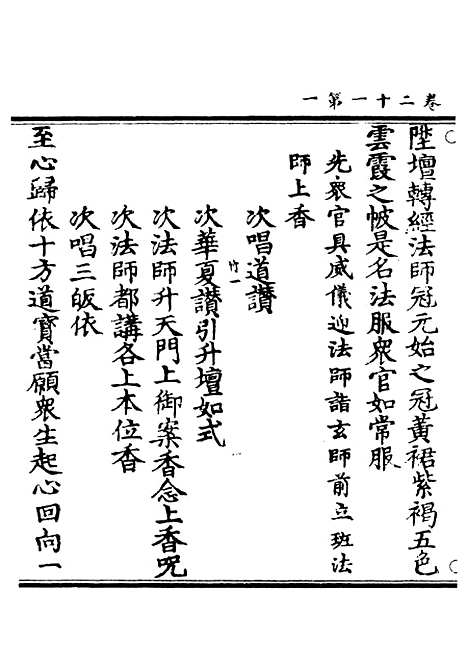 卷二十一第一
陞壇轉經法師冠元始之冠黃裙紫褐五色
雲霞之帔是名法服衆官如常服
先衆官具威儀迎法師詣玄師前立班法
師上香
次唱道讚
竹一
次華夏讚引升壇如式
次法師升天門上御案香念上香呪
次法師都講各上本位香
次唱三皈依
至心歸依十方道寳當願衆生起心回向一